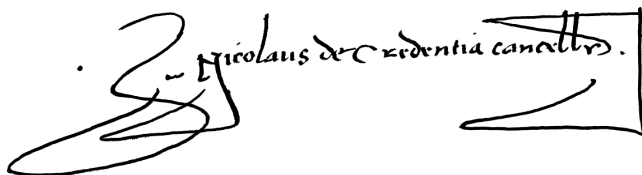 Nicolaus de Credentia cancell